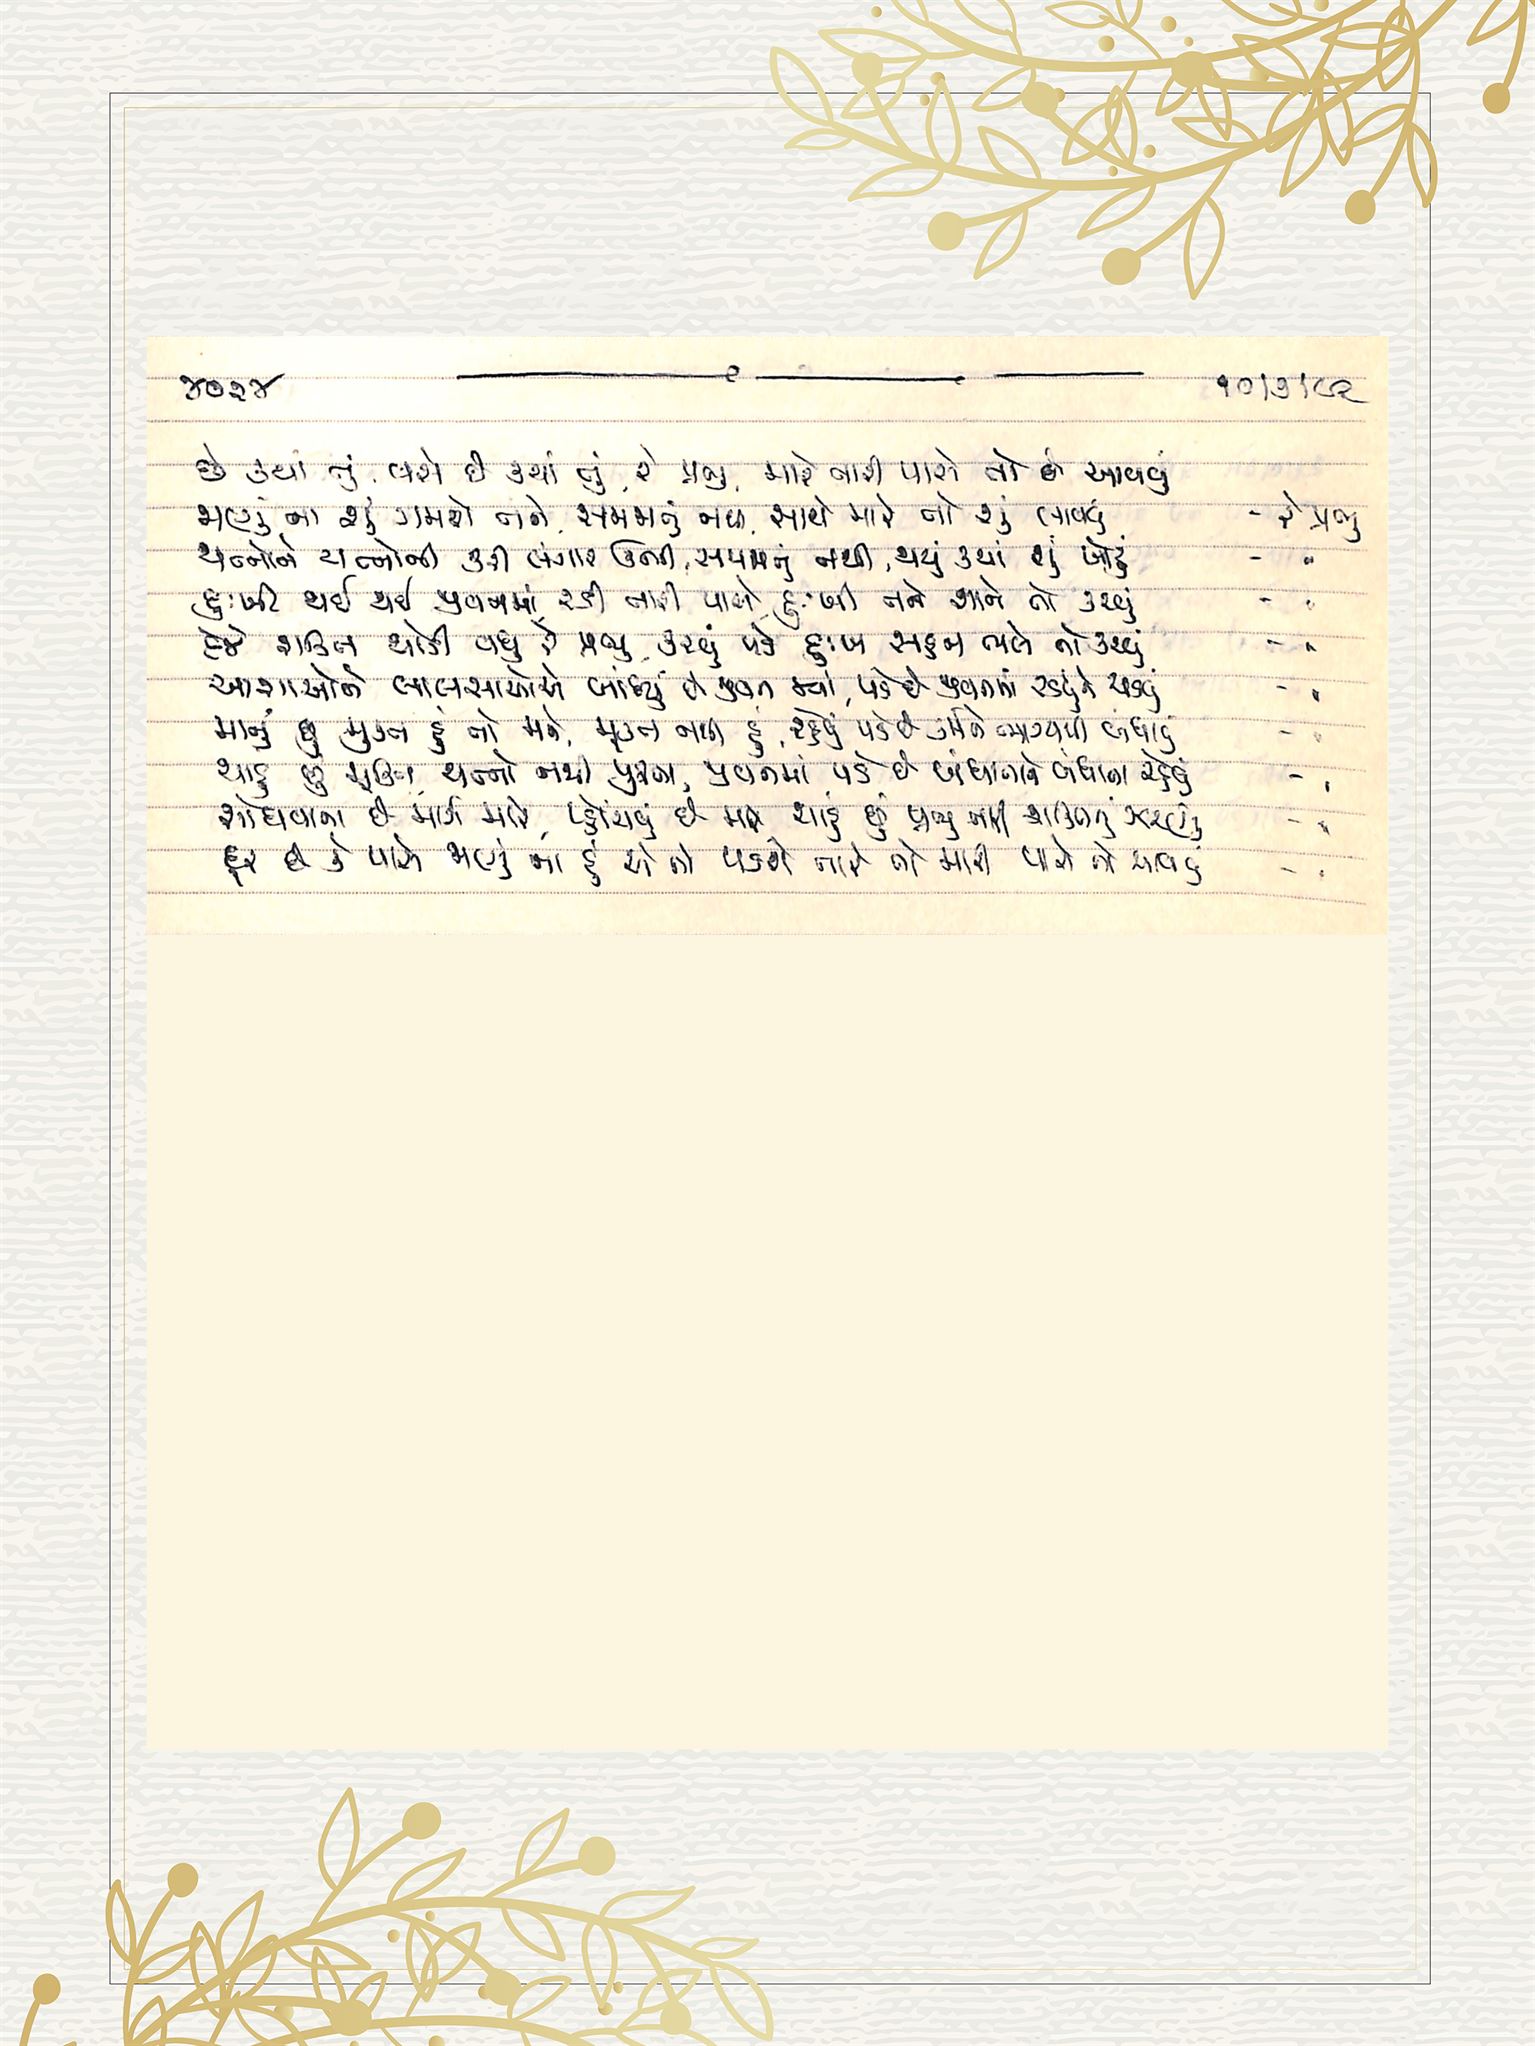 ૪૦૨૪ ૧૦/૭/૯૨
છે ક્યાં તું, વસે છે ક્યાં તું, રે પ્રભુ, મારે તારી પાસે તો છે આવવું
જાણું ના શું ગમશે તને, સમજાતું નથી, સાથે મારે તો શું લાવવું - રે પ્રભુ
યત્નોને યત્નોની કરી લંગાર ઊભી, સમજાતું નથી, થયું ક્યાં શું ખોટું - "
દુઃખી થઈ થઈ જીવનમાં રડી તારી પાસે, દુઃખી તને શાને તો કરવું - "
દેજે શક્તિ થોડી વધુ રે પ્રભુ, કરવું પડે દુઃખ સહન ભલે તો કરવું - "
આશાઓને લાલસાઓએ બાંધ્યું છે જીવન જ્યાં, પડે છે જીવનમાં રડવુંને રડવું - "
માનું છું મુક્ત હું તો મને, મુક્ત નથી હું, રહેવું પડે છે કર્મને ભાગ્યથી બંધાવું - "
ચાહું છું મુક્તિ, યત્નો નથી પૂરતા, જીવનમાં પડે છે બંધાતાને બંધાતા રહેવું - "
શોધવાના છે માર્ગ મારે, પ્હોંચવું છે મારે ચાહું છું પ્રભુ તારી શક્તિનું ઝરણું - "
દૂર છે કે પાસે જાણું ના હું એ તો પડશે તારે તો મારી પાસે તો આવવું - "